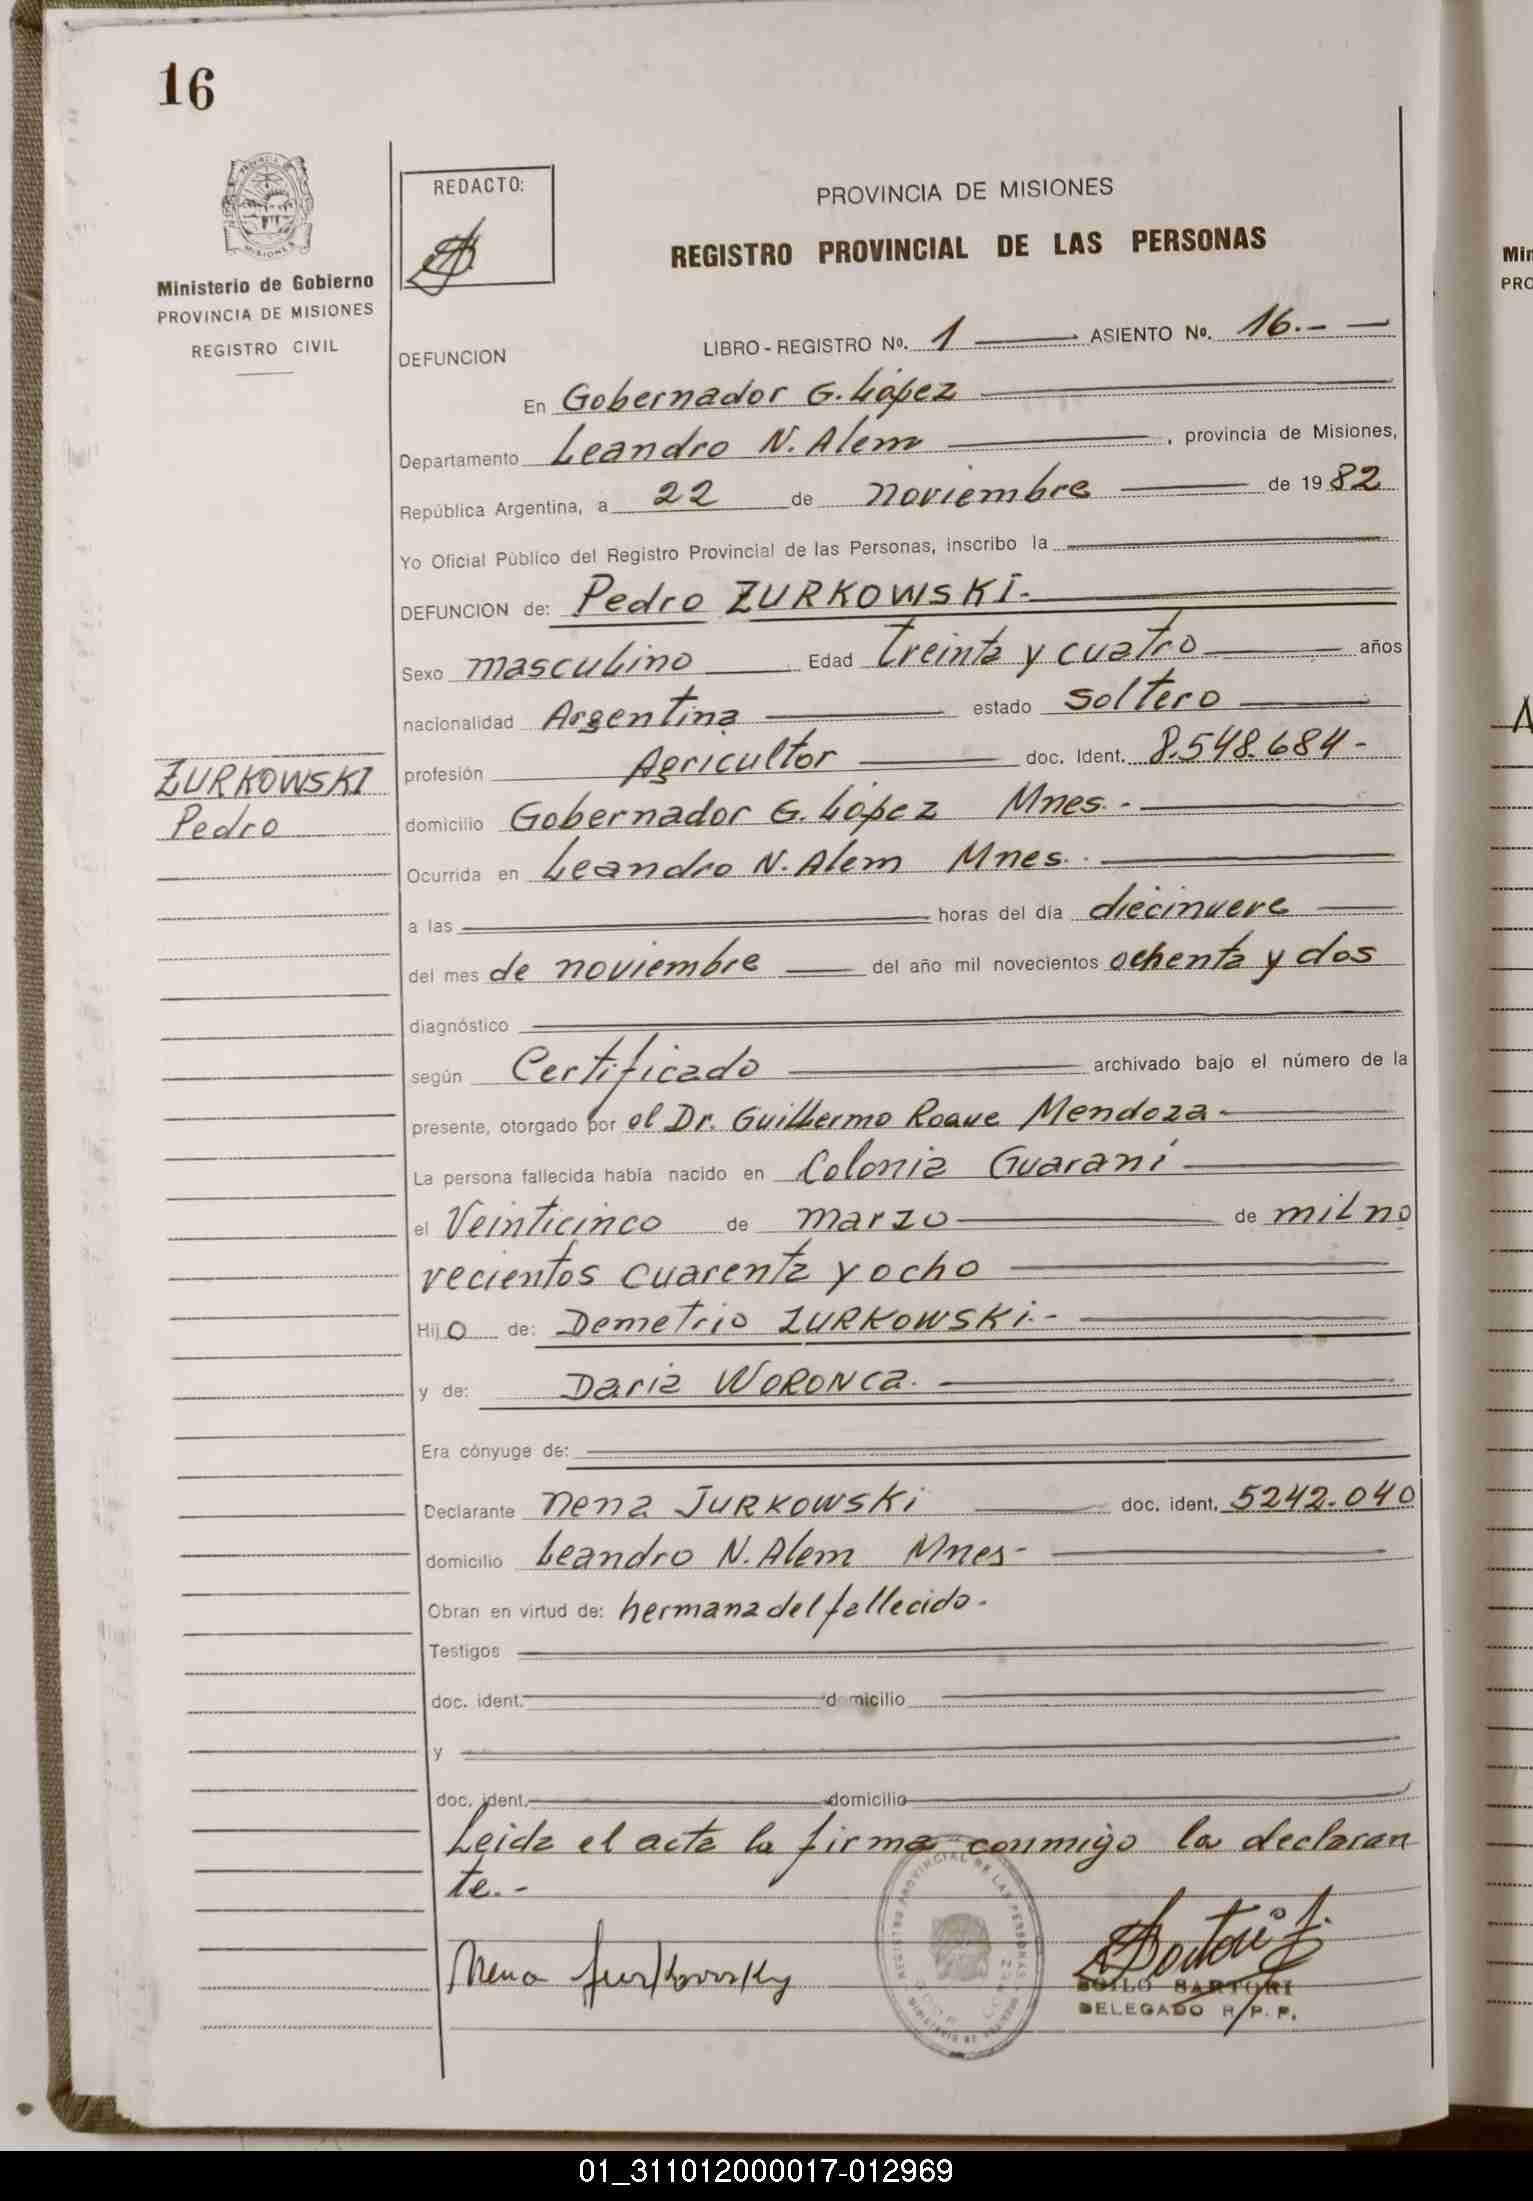 16
REDACTO:
PROVINCIA DE MISIONES
REGISTRO PROVINCIAL DE LAS PERSONAS
Ministerio de Gobierno
PROVINCIA DE MISIONES
REGISTRO CIVIL
DEFUNCION LIBRO - REGISTRO Nº. 1 ASIENTO Nº. 16.-
En Gobernador G. López
Departamento Leandro N. Alem , provincia de Misiones,
República Argentina, a 22 de noviembre de 1982
Yo Oficial Público del Registro Provincial de las Personas, inscribo la
DEFUNCION de: Pedro ZURKOWSKI.
Sexo masculino Edad treinta y cuatro años
nacionalidad Argentina estado soltero
ZURKOWSKI
Pedro
profesión Agricultor doc. Ident. 8.548.684-
domicilio Gobernador G. López Mnes.-
Ocurrida en Leandro N. Alem Mnes.
a las horas del día diecinueve
del mes de noviembre del año mil novecientos ochenta y dos
diagnóstico
según Certificado archivado bajo el número de la
presente, otorgado por el Dr. Guillermo Roque Mendoza-
La persona fallecida había nacido en Colonia Guaraní
el Veinticinco de marzo de mil no
vecientos cuarenta y ocho
Hijo de: Demetrio ZURKOWSKi.-
y de: Daria WORONCA.
Era cónyuge de:
Declarante nena JURKOWSKi doc. ident. 5242.040
domicilio Leandro N. Alem Mnes-
Obran en virtud de: hermana del fallecido.
Testigos
doc. ident. domicilio
y
doc. ident. domicilio
Leida el acta la firma conmigo la declaran
te.-
Nena Jurkowsky
REGISTRO PROVINCIAL DE LAS PERSONAS
ZOILO SARTORI
DELEGADO R.P.P.
01_311012000017-012969